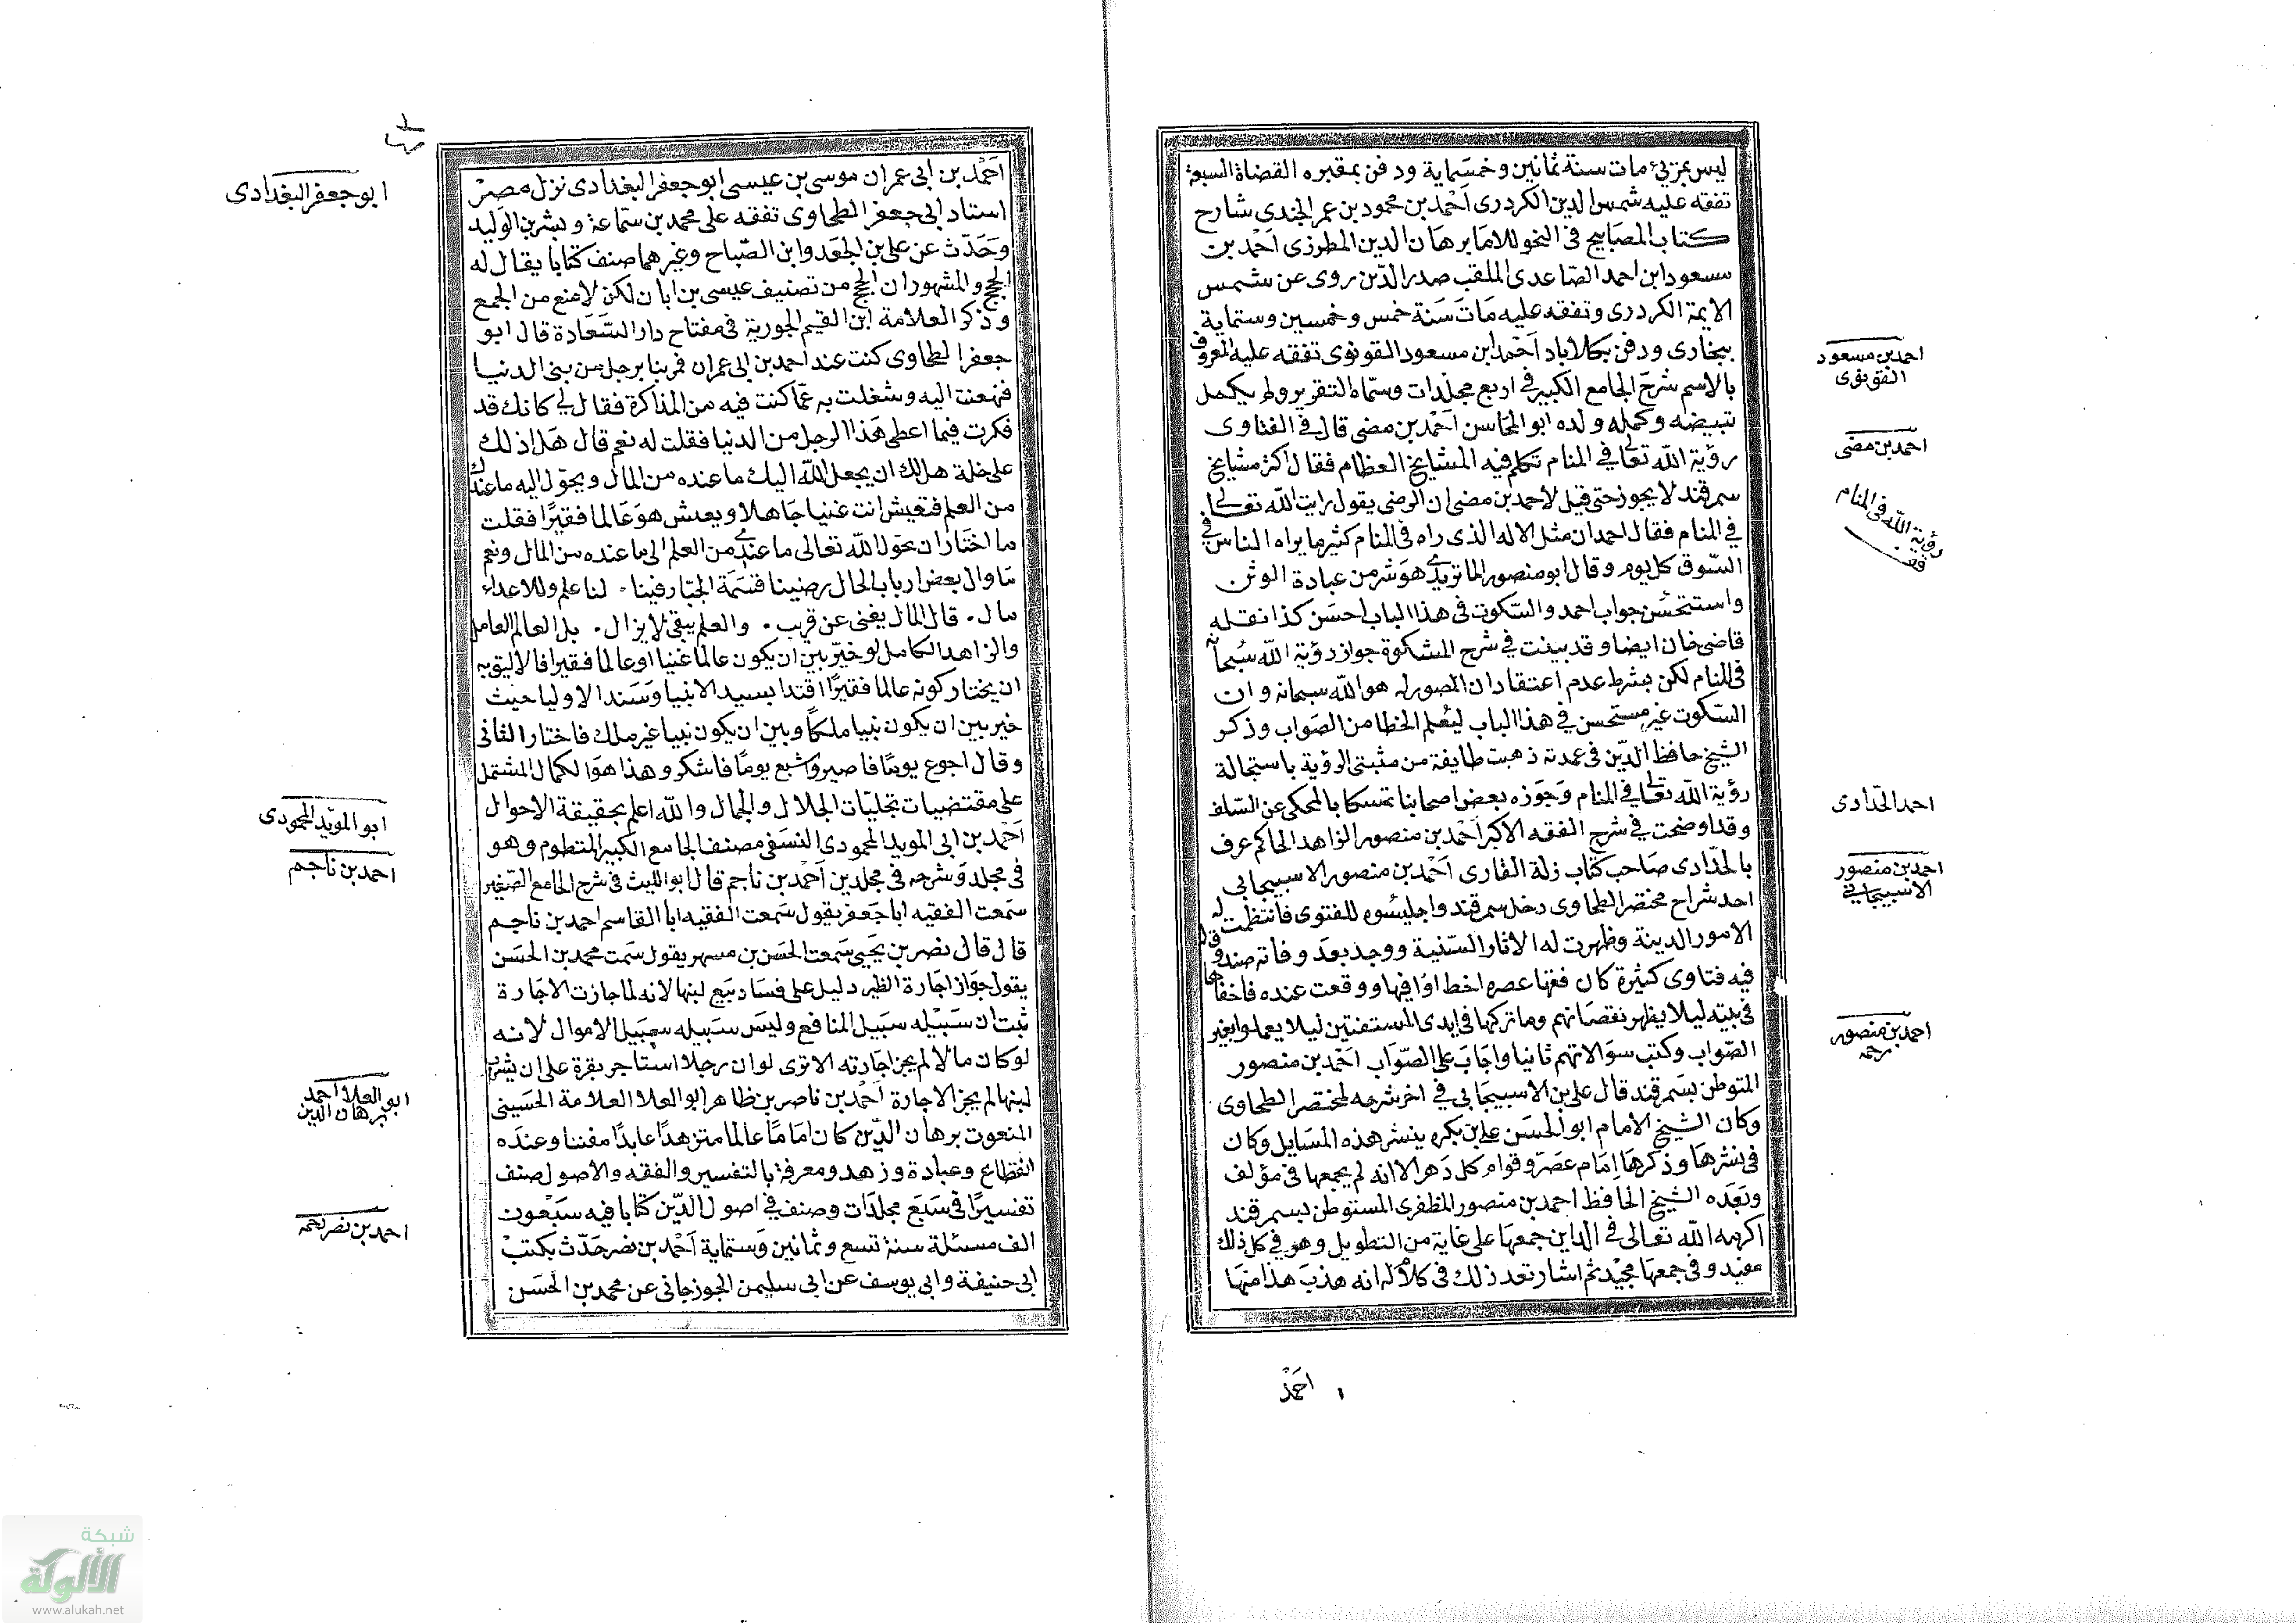 ليس بمرتئ مات سنة ثمانين وخمسماية ودفن بمقبره القضاة السبعة
تفقه عليه شمس الدين الكردرى أحمد بن محمود بن عمر الجندى شارح
كتاب المصابيح فى النحو للامام برهان الدين المطرزى أحمد بن
مسعود ابن احمد الصاعدى الملقب صدر الدين روى عن شمس
الايمة الكردرى وتفقه عليه مات سنة خمس وخمسين وستماية
ببخارى ودفن بكلاباد أحمد ابن مسعود القونوى تفقه عليه المعروف
بالاسم شرح الجامع الكبير فى اربع مجلدات وسماه التقرير ولم يكمل
تبييضه وكمله ولده ابو المحاسن أحمد بن مضى قال فى الفتاوى
رؤية الله تعالى فى المنام تكلم فيه المشايخ العظام فقال اكثر مشايخ
سمرقند لا يجوز حتى قيل لاحمد بن مضى ان الرضى يقول رايت الله تعالى
فى المنام فقال احمد ان مثل الاله الذى راه فى المنام كثير ما يراه الناس فى
السوق كل يوم وقال ابو منصور الماتريدى هو شر من عبادة الوثن
واستحسن جواب احمد والسكوت فى هذا الباب احسن كذا نقله
قاضى خان ايضا وقد بينت فى شرح المشكوة جواز رؤية الله سبحانه
فى المنام لكن بشرط عدم اعتقاد ان المصور له هو الله سبحانه وان
السكوت غير مستحسن فى هذا الباب ليعلم الخطا من الصواب وذكر
الشيخ حافظ الدين فى عمدته ذهبت طايفة من مثبتى الرؤية باستحالة
رؤية الله تعالى فى المنام وجوزه بعض اصحابنا تمسكا بالمحكى عن السلف
وقد اوضحت فى شرح الفقه الاكبر أحمد بن منصور الزاهد الحاكم عرف
بالحدادى صاحب كتاب زلة القارى أحمد بن منصور الاسبيجابى
احد شراح مختصر الطحاوى دخل سمرقند واجلسوه للفتوى فانتظمت له
الامور الدينة وظهرت له الاثار السنية ووجد بعد وفاته صندوق له
فيه فتاوى كثيرة كان فقها عصره اخطاوا فيها ووقعت عنده فاخفاها
فى بيته ليلا يظهر نقصانهم وما تركها فى ايدى المستفتين ليلا يعملوا بغير
الصواب وكتب سوالاتهم ثانيا واجاب على الصواب أحمد بن منصور
المتوطن بسمرقند قال على بن الاسبيجابى فى اخر شرحه لمختصر الطحاوى
وكان الشيخ الامام ابو الحسن على بن بكره ينشر هذه المسايل وكان
فى نشرها وذكرها امام عصره وقوام كل دهر الا انه لم يجمعها فى مؤلف
وبعده الشيخ الحافظ احمد بن منصور المظفرى المستوطن بسمرقند
اكرمه الله تعالى فى الدارين جمعها على غاية من التطويل وهو فى كل ذلك
مفيد وفى جمعها مجيد ثم اشار بعد ذلك فى كلامه انه هذب هذا منها
احمد
احمد بن مسعود
القونوى
احمد بن مضى
رؤية الله فى المنام
قف
احمد الحدادى
احمد بن منصور
الاسبيجابي
احمد بن منصور
رحمه
أحمد بن ابى عمران موسى بن عيسى ابو جعفر البغدادى نزل مصر
استاد ابى جعفر الطحاوى تفقه على محمد بن سماعة وبشر بن الوليد
وحدث عن على بن الجعد وابن الصباح وغيرهما صنف كتابا يقال له
الحج والمشهور ان الحج من تصنيف عيسى بن ابان لكن لا منع من الجمع
وذكر العلامة ابن القيم الجورية فى مفتاح دار السعادة قال ابو
جعفر الطحاوى كنت عند احمد بن ابى عمران فمر بنا برجل من بنى الدنيا
فنهعت اليه وشغلت به عما كنت فيه من المذاكرة فقال لى كانك قد
فكرت فيما اعطى هذا الرجل من الدنيا فقلت له نعم قال هل ادلك
على خلة هل لك ان يجعل الله اليك ما عنده من المال ويحول اليه ما عندك
من العلم فتعيش انت غنيا جاهلا ويعيش هو عالما فقيرا فقلت
ما اختار ان يحول الله تعالى ما عندى من العلم الى ما عنده من المال ونعم
ما وال بعض ارباب الحال رضينا قسمة الجبار فينا ۰ لنا علم وللاعداء
مال ۰ قال المال يفنى عن قريب ۰ والعلم يبقى لا يزال ۰ بل العالم العامل
والزاهد الكامل لو خير بين ان يكون عالما غنيا او عالما فقيرا فالاليق به
ان يختار كونه عالما فقيرا اقتدا بسيد الانبيا وسند الاوليا حيث
خير بين ان يكون نبيا ملكا وبين ان يكون نبيا غير ملك فاختار الثانى
وقال اجوع يوما فاصبر واشبع يوما فاشكر وهذا هو الكمال المشتمل
على مقتضيات تجليات الجلال والجمال والله اعلم بحقيقة الاحوال
أحمد بن ابى المويد المحمودى النسفى مصنف الجامع الكبير المنظوم وهو
فى مجلد وشرحه فى مجلدين أحمد بن ناجم قال ابو الليث فى شرح الجامع الصغير
سمعت الفقيه ابا جعفر يقول سمعت الفقيه ابا القاسم احمد بن ناجم
قال قال نصر بن يحيى سمعت الحسن بن مسهر يقول سمت محمد بن الحسن
يقول جواز اجارة الظير دليل على فساد بيع لبنها لانه لما جازت الاجارة
ثبت ان سبيله سبيل المنافع وليس سبيله سبيل الاموال لانه
لو كان مالا لم يجز اجارته الا ترى لو ان رجلا استاجر بقرة على ان يشرب
لبنها لم يجز الاجارة أحمد بن ناصر بن ظاهر ابو العلا العلامة الحسينى
المنعوت برهان الدين كان اماما عالما متزهدا عابدا مفتيا وعنده
انقطاع وعبادة وزهد ومعرفة بالتفسير والفقه والاصول صنف
تفسيرا فى سبع مجلدات وصنف فى اصول الدين كتابا فيه سبعون
الف مسئلة سنة تسع وثمانين وستماية أحمد بن نصر حدث بكتب
ابى حنيفة وابى يوسف عن ابى سليمن الجوزجانى عن محمد بن الحسن
ابو جعفر البغدادى
ابو المويد المحمودى
احمد بن ناجم
ابو العلا احمد
برهان الدين
احمد بن نصر رحمه
شبكة
الألوكة
www.alukah.net